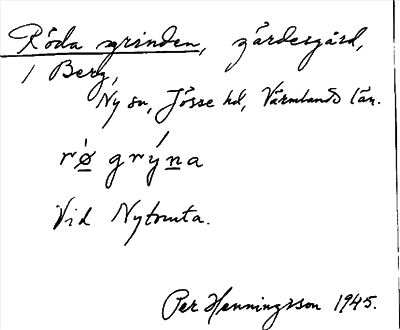 Röda grinden, gärdesgård,
i Berg,
Ny sn, Jösse hd, Värmlands län.
rø̀ grýna
Vid Nytomta.
Per Henningsson 1945.